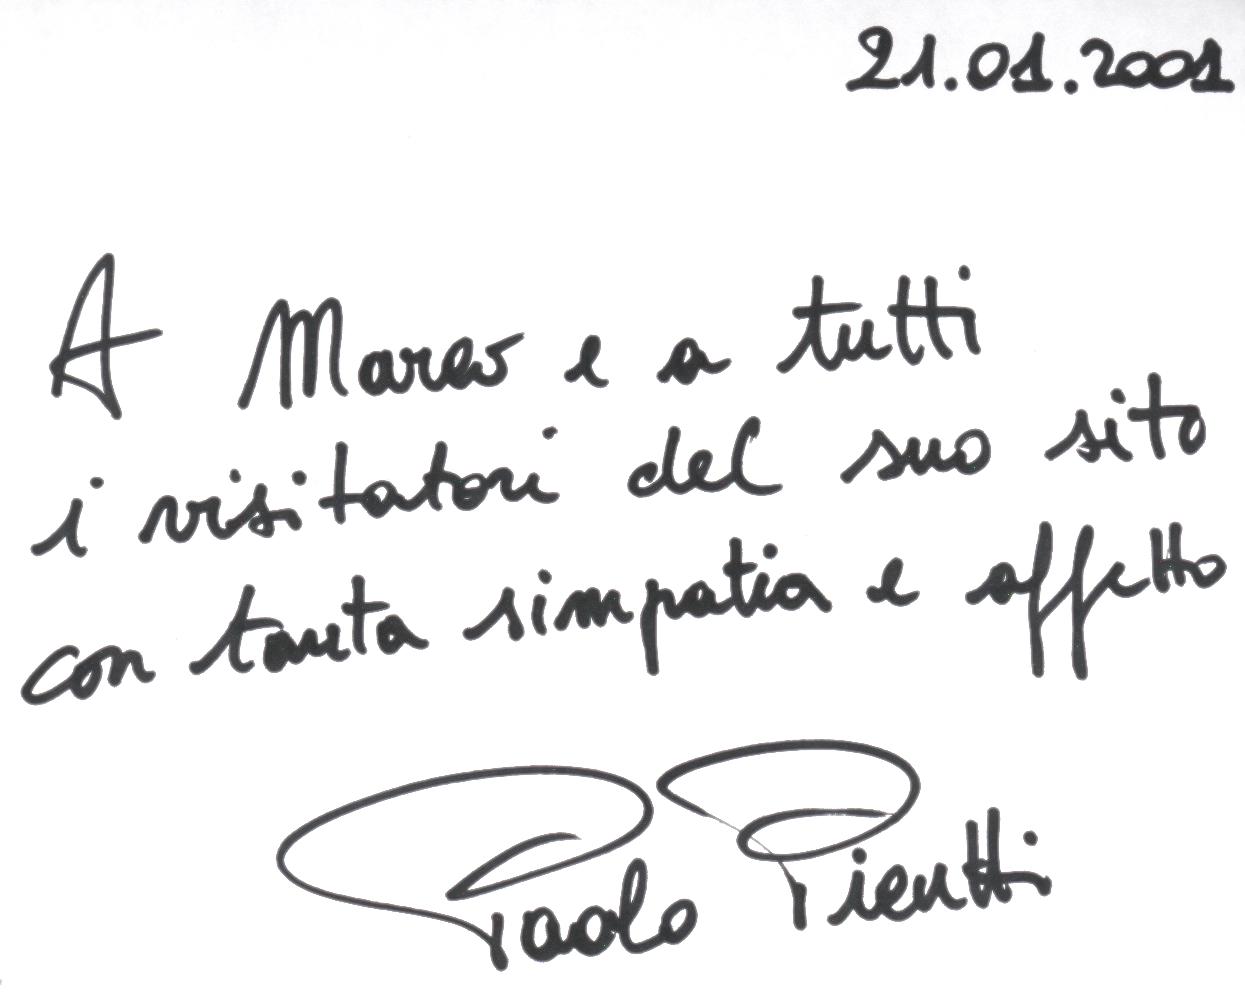 21.01.2001
A Marco e a tutti
i visitatori del suo sito
con tanta simpatia e affetto
Paolo Pientti